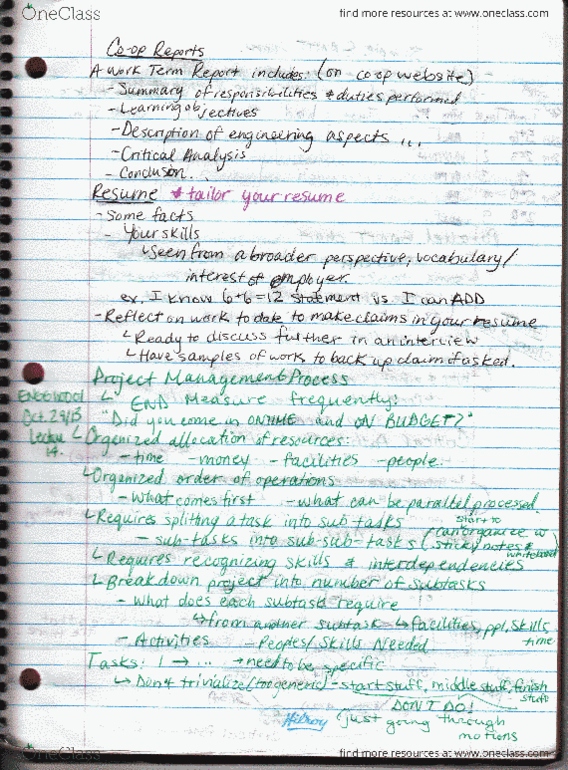 OneClass
find more resources at www.oneclass.com
Co-op Reports
A work Term Report includes: (on co-op website)
- Summary of responsibilities & duties performed
- Learning objectives
- Description of engineering aspects ...
- Critical Analysis
- Conclusion.
Resume * tailor your resume
- Some facts
- Your skills
↳ seen from a broader perspective, vocabulary/
interest of employer.
ex. I know 6+6=12 statement vs. I can ADD
- Reflect on work to date to make claims in your resume
↳ Ready to discuss further in an interview
↳ Have samples of work to back up claim if asked.
Project Management Process
Oct. 29/13
Lecture
14.
↳ END Measure frequently:
"Did you come in ON TIME and ON BUDGET?"
↳ Organized allocation of resources:
- time - money - facilities - people.
↳ Organized order of operations
- What comes first - what can be parallel processed.
↳ Requires splitting a task into sub tasks
- sub-tasks into sub-sub-tasks (start to can organize w sticky notes & whiteboard)
↳ Requires recognizing skills & interdependencies
↳ Break down project into number of subtasks
- What does each subtask require
↳ from another subtask ↳ facilities, ppl, skills, time
- Activities - Peoples/Skills Needed
Tasks: 1 → ... → need to be specific
↳ Don't trivialize (too generic) - start stuff, middle stuff, finish stuff
DON'T DO!
(just going through
motions
Hilroy
OneClass
find more resources at www.oneclass.com